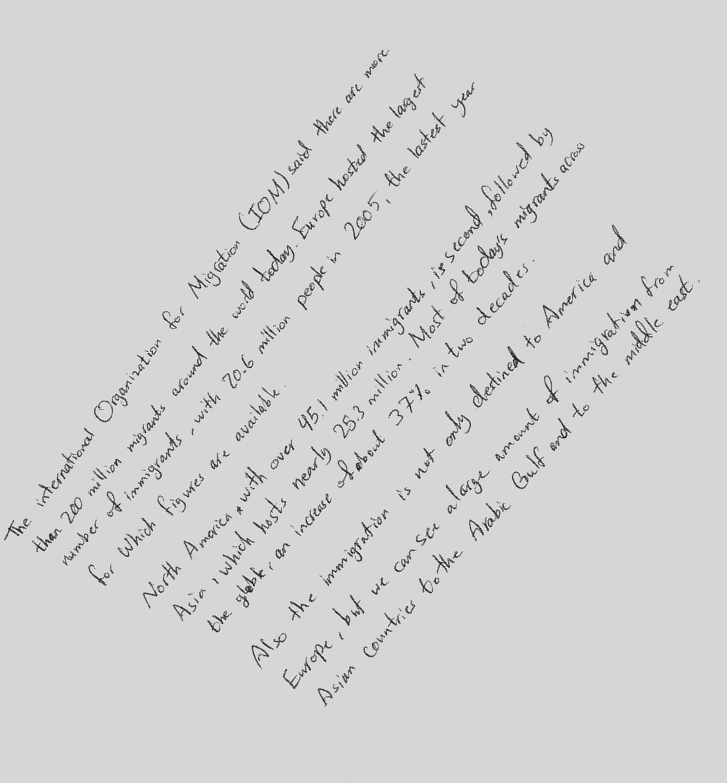 The international Organization for Migration (IOM) said there are more
than 200 million migrants around the world today. Europe hosted the largest
number of immigrants, with 70.6 million people in 2005, the lastest year
for which figures are available.
North America, with over 45.1 million immigrants, is second, followed by
Asia, which hosts nearly 25.3 million. Most of today's migrants across
the globe, an increase of about 37% in two decades.
Also the immigration is not only destined to America and
Europe, but we can see a large amount of immigration from
Asian Countries to the Arabic Gulf and to the middle east.